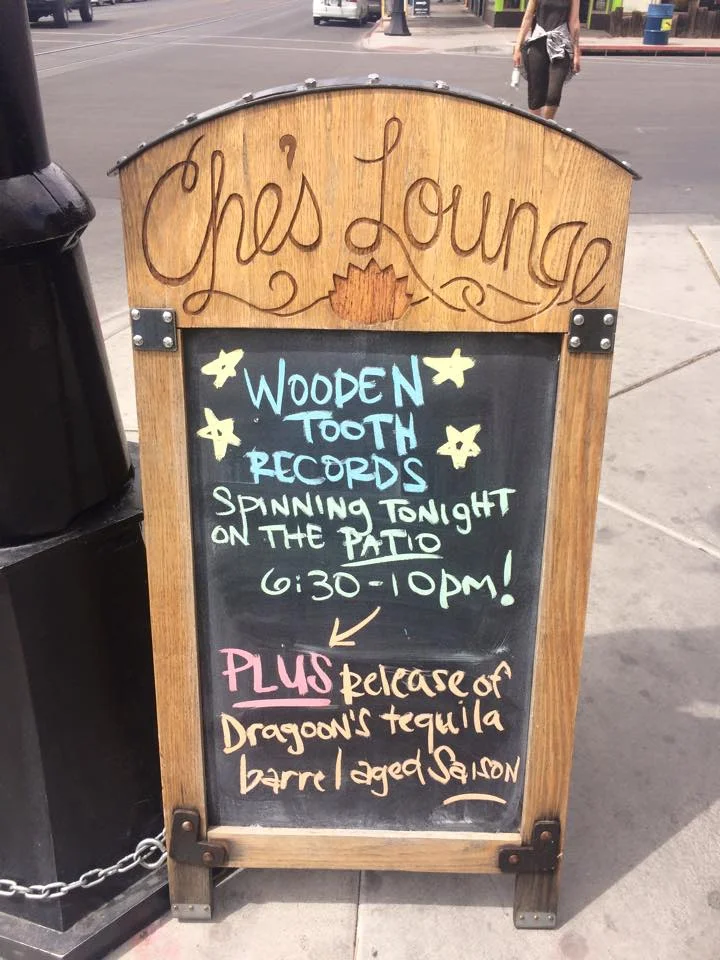 Che's Lounge
WOODEN
TOOTH
RECORDS
SPINNING TONIGHT
ON THE PATIO
6:30-10pm!
PLUS Release of
Dragoon's tequila
barrel aged Saison